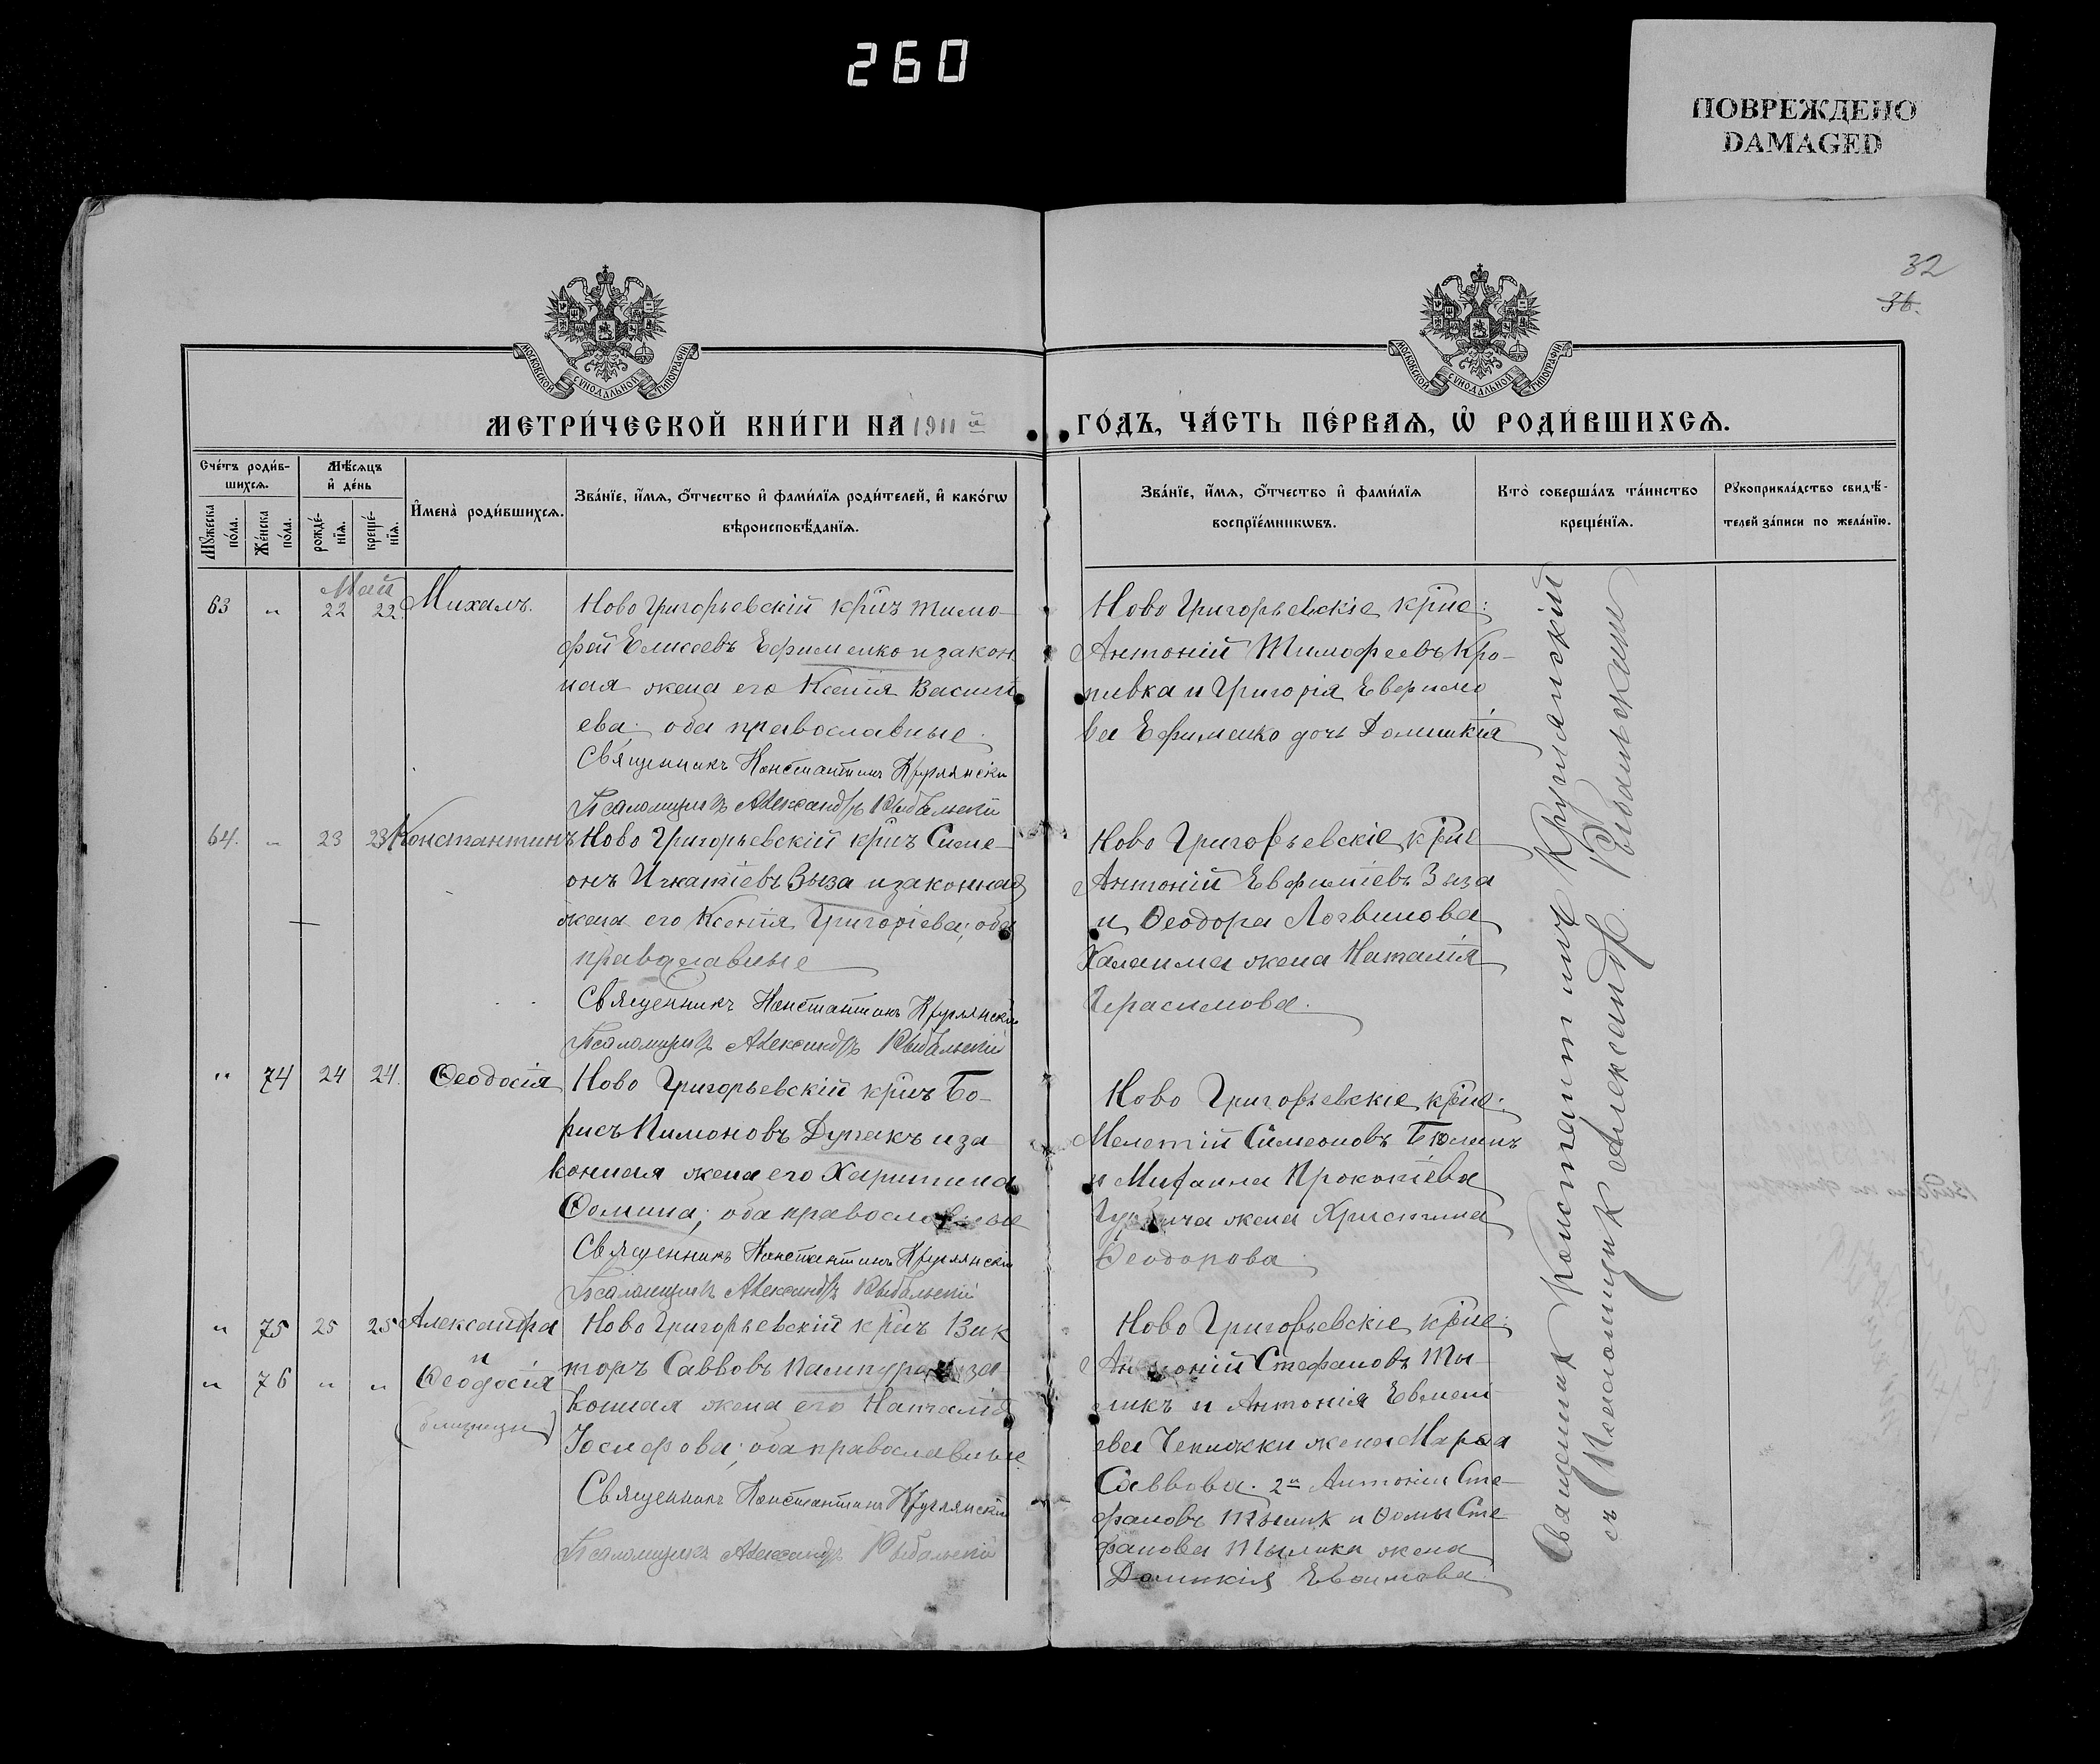 260
ПОВРЕЖДЕНО
DAMAGED
32
36.
МОСКОВСКОЙ СѴНОДАЛЬНОЙ ТИПОГРАФІИ
МОСКОВСКОЙ СѴНОДАЛЬНОЙ ТИПОГРАФІИ
МЕТРИ́ЧЕСКОЙ КНИ́ГИ НА 1911 й
ГО́ДЪ, ЧА́СТЬ ПЕ́РВАѦ, Ѽ РОДИ́ВШИХСѦ.
Сче́тъ роди́в-
шихсѧ.
Мꙋжеска по́ла.
Же́нска по́ла.
Мѣ́сѧцъ
и҆ де́нь
рожде́-нїѧ.
креще́-нїѧ.
И҆мена̀ роди́вшихсѧ.
Зва́нїе, и҆́мѧ, ѻ҆́тчество и҆ фами́лїѧ роди́телей, и҆ како́гѡ
вѣроисповѣ́данїѧ.
Зва́нїе, и҆́мѧ, ѻ҆́тчество и҆ фами́лїѧ
воспрїе́мникѡвъ.
Кто̀ соверша́лъ та́инство
креще́нїѧ.
Рꙋкоприкла́дство свидѣ́-
телей за́писи по жела́нїю.
Май
63 " 22 22 Михаилъ.
Ново Григорьевскій кр̃нъ Тимо-
фей Елисеевъ Ефименко и закон
ная жена его Ксенія Васильи
ева; оба православные.
Священникъ Константинъ Круглянскій
Псаломщикъ Александръ Рыбальскій
Ново Григорьевскіе кр̃не:
Антоній Тимофеевъ Кро-
пивка и Григорія
ва Ефименко дочь Домникія
64. " 23 23 Константинъ
Ново Григорьевскій кр̃нъ Симе-
онъ Игнатіевъ Зыза и законная
жена его Ксенія Григоріева; оба
православные
Священникъ Константинъ Круглянскій
Псаломщикъ Александръ Рыбальскій
Ново Григорьевскіе кр̃не
Антоній Евфиміевъ Зыза
и Ѳеодора Логвинова
Халаима жена Наталія
Герасимова.
" 74 24 24. Ѳеодосія
Ново Григорьевскій кр̃нъ Бо-
рисъ Пимоновъ Дупакъ и за
конная жена его Харитина
Ѳомина; оба православные
Священникъ Константинъ Круглянскій
Псаломщикъ Александръ Рыбальскій
Ново Григорьевскіе кр̃не:
Мелетій Симеоновъ
и Михаила Прокопіева
жена Христина
Ѳеодорова
" 75 25 25 Александра
и
" 76 " " Ѳеодосія
(близнецы)
Ново Григорьевскій кр̃нъ Вик
торъ Саввовъ и за
конная жена его Наталія
Іосифова; оба православные.
Священникъ Константинъ Круглянскій
Псаломщикъ Александръ Рыбальскій
Ново Григорьевскіе кр̃не:
Антоній Стефановъ Ты-
ликъ и Антонія Евмені
ева Чепижки жена Марѳа
Саввова. 2й Антоній Сте
фановъ Тыликъ и Ѳомы Сте
фанова Тылика жена
Домникія
Священникъ Константинъ Круглянскій
съ Псаломщик Александр. Рыбальскимъ